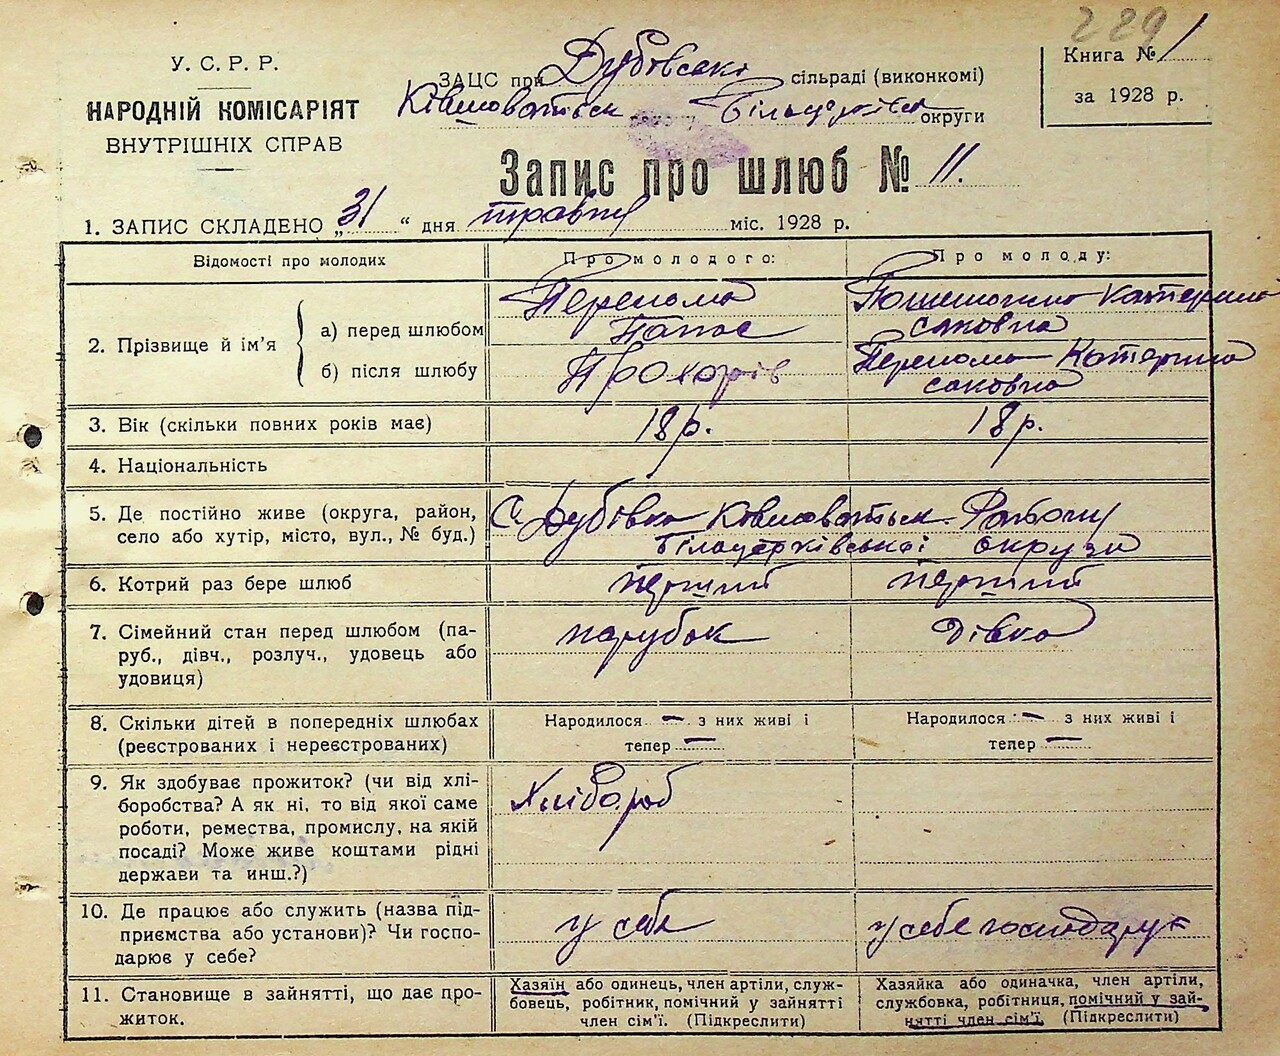 2291
У. С. Р. Р.
НАРОДНІЙ КОМІСАРІЯТ
ВНУТРІШНІХ СПРАВ
ЗАЦС при Дубівські сільраді (виконкомі)
округи
Книга № 1
за 1928 р.
Запис про шлюб № 11.
1. ЗАПИС СКЛАДЕНО „31“ дня травня міс. 1928 р.
Відомості про молодих
Про молодого:
Про молоду:
2. Прізвище й ім’я
а) перед шлюбом
б) після шлюбу
Перепома
Панас
Прохорів
Катерина
саковна
Перепома Катерина
саковна
3. Вік (скільки повних років має)
18 р.
18 р.
4. Національність
5. Де постійно живе (округа, район,
село або хутір, місто, вул., № буд.)
С. Дубівка Ківшоватськ. Району
Білоцерківської округи
6. Котрий раз бере шлюб
перший
перший
7. Сімейний стан перед шлюбом (па-
руб., дівч., розлуч., удовець або
удовиця)
парубок
дівка
8. Скільки дітей в попередніх шлюбах
(реєстрованих і нереєстрованих)
Народилося — з них живі і
тепер —
Народилося — з них живі і
тепер —
9. Як здобуває прожиток? (чи від хлі-
боробства? А як ні, то від якої саме
роботи, ремества, промислу, на якій
посаді? Може живе коштами рідні
держави та инш.?)
Хлібороб
10. Де працює або служить (назва під-
приємства або установи)? Чи госпо-
дарює у себе?
у себе
у себе господарує
11. Становище в зайнятті, що дає про-
житок.
Хазяїн або одинець, член артілі, служ-
бовець, робітник, помічний у зайнятті
член сім’ї. (Підкреслити)
Хазяйка або одиначка, член артіли,
службовка, робітниця, помічний у зай-
нятті член сім’ї. (Підкреслити)